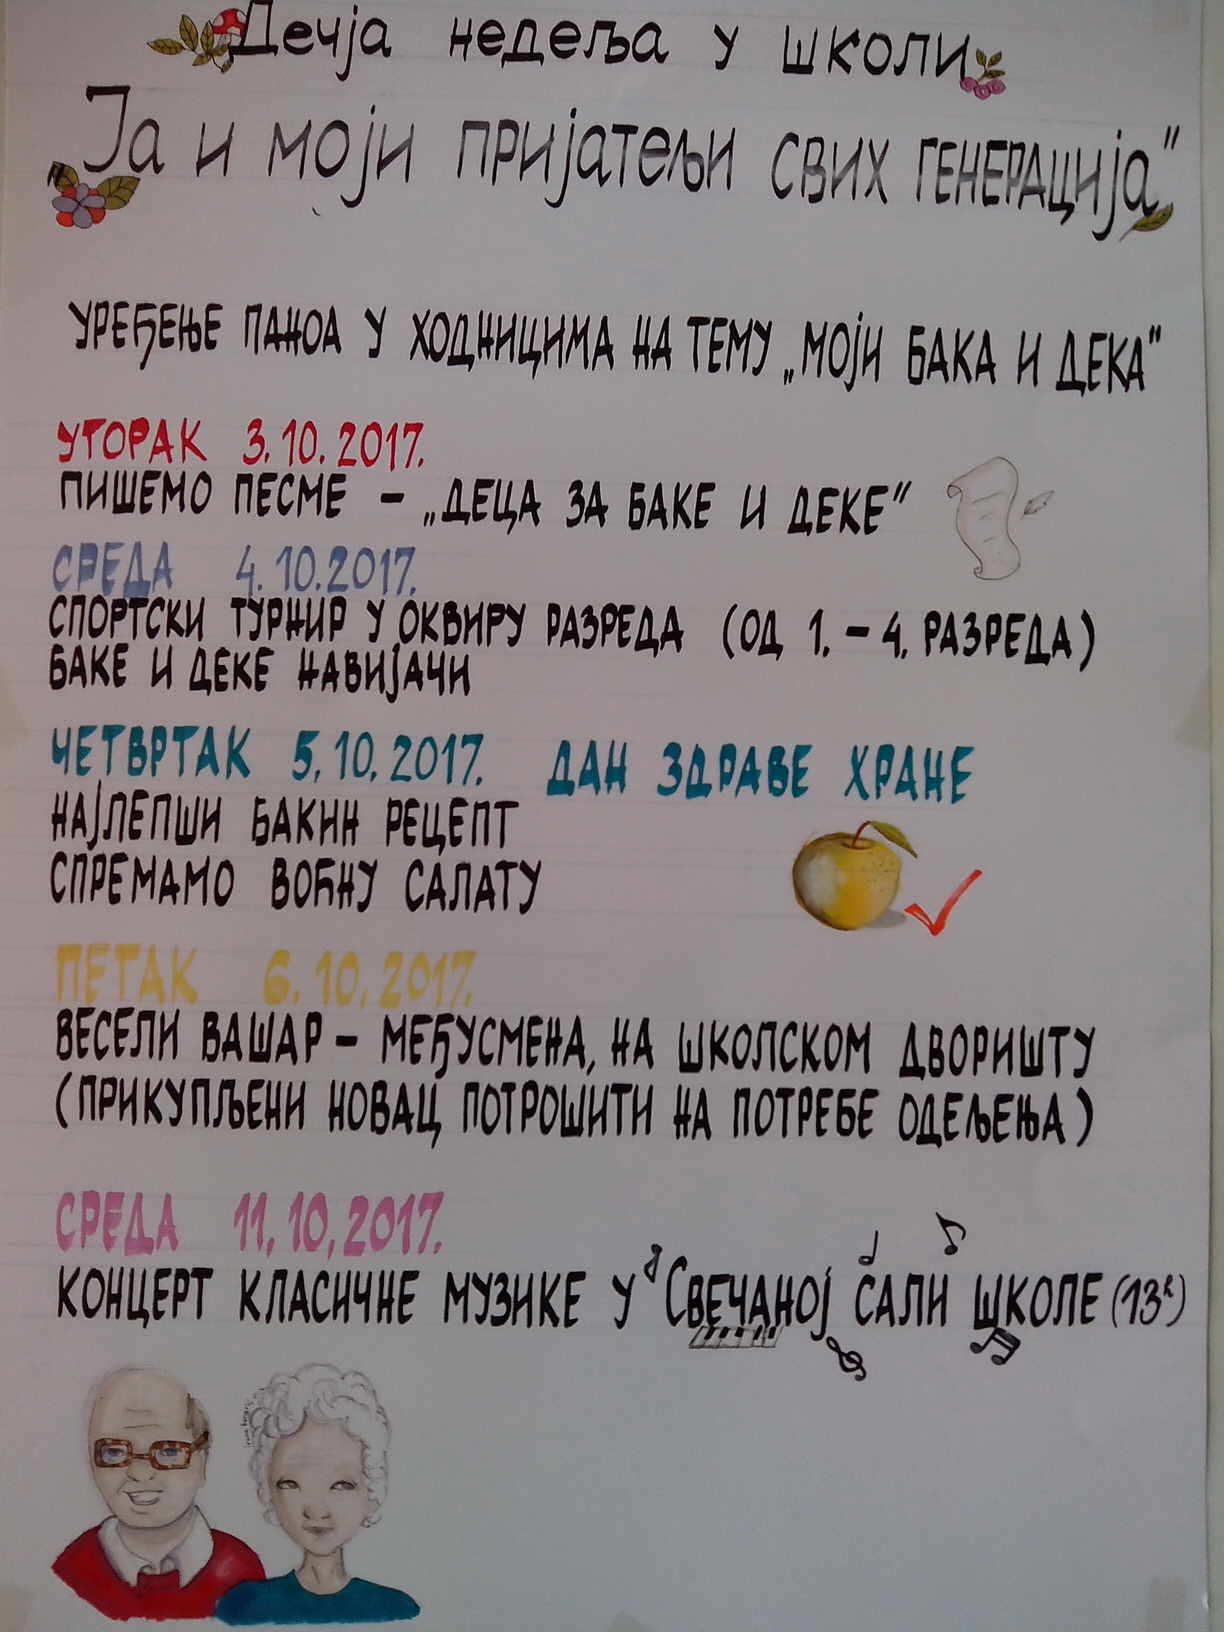 Дечја недеља у школи
Ја и моји пријатељи свих генерација"
УРЕЂЕЊЕ ПАНОА У ХОДНИЦИМА НА ТЕМУ „МОЈИ БАКА И ДЕКА"
УТОРАК 3.10.2017.
ПИШЕМО ПЕСМЕ – „ДЕЦА ЗА БАКЕ И ДЕКЕ"
СРЕДА 4.10.2017.
СПОРТСКИ ТУРНИР У ОКВИРУ РАЗРЕДА (ОД 1. – 4. РАЗРЕДА)
БАКЕ И ДЕКЕ НАВИЈАЧИ
ЧЕТВРТАК 5.10.2017. ДАН ЗДРАВЕ ХРАНЕ
НАЈЛЕПШИ БАКИН РЕЦЕПТ
СПРЕМАМО ВОЋНУ САЛАТУ
ПЕТАК 6.10.2017.
ВЕСЕЛИ ВАШАР – МЕЂУСМЕНА, НА ШКОЛСКОМ ДВОРИШТУ
(ПРИКУПЉЕНИ НОВАЦ ПОТРОШИТИ НА ПОТРЕБЕ ОДЕЉЕЊА)
СРЕДА 11.10.2017.
КОНЦЕРТ КЛАСИЧНЕ МУЗИКЕ У СВЕЧАНОЈ САЛИ ШКОЛЕ (13h)